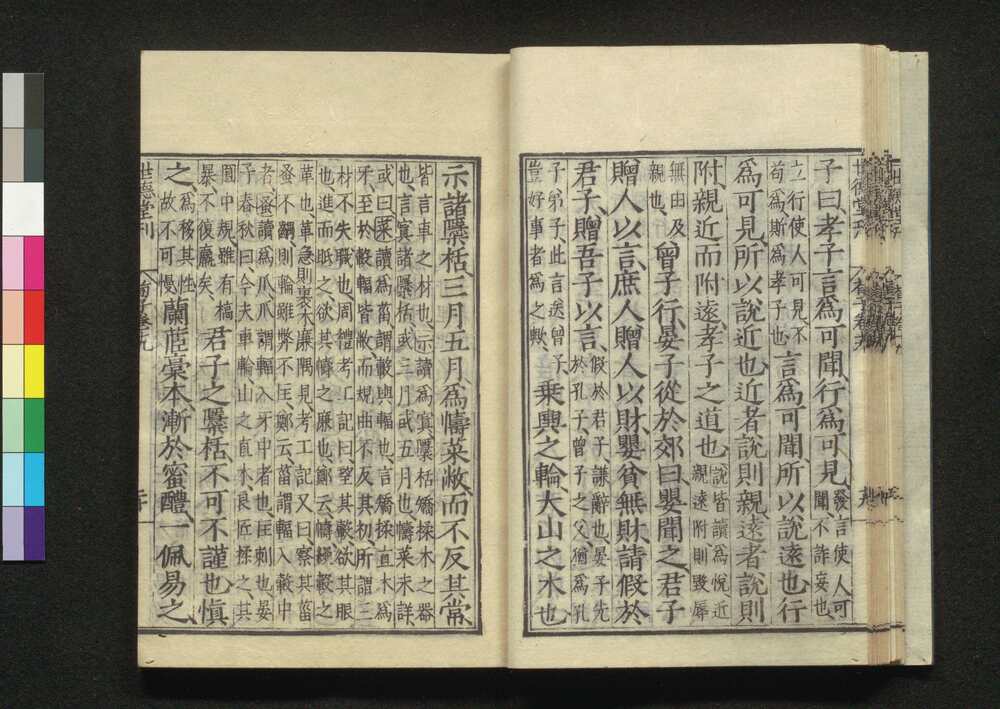 子曰、孝子言為可聞、行為可見、發言使人可聞、不詐妄也、
立行使人可見、不苟為、斯為孝子也、言為可聞、所以說遠也、行
為可見、所以說近也、近者說則親、遠者說則
附、親近而附遠、孝子之道也、說皆讀為悅、近親遠附則毀辱
無由及親也、曾子行、晏子從於郊、曰、嬰聞之、君子
贈人以言、庶人贈人以財、嬰貧無財、請假於
君子、贈吾子以言、假於君子、謙辭也、晏子先於孔子、曾子之父猶為孔
子弟子、此言送曾子、豈好事者為之歟、乘輿之輪、大山之木也、
示諸檃栝、三月五月、為幬菜、敝而不反其常、
皆言車之材也、示讀為寘、檃栝矯揉木之器也、言寘諸檃栝、或三月或五月也、幬菜未詳、
或曰、菜讀為菑、謂轂與輻也、言矯揉直木為牙、至於轂輻皆敝、而規曲不反其初、所謂三
材不失職也、周禮考工記曰、望其轂、欲其眼也、進而眡之、欲其幬之廉也、鄭云、幬縵轂之
革也、革急則裹木廉隅見、考工記又曰、察其菑蚤不齵、則輪雖弊不匡、鄭云、菑謂輻入轂中
者、蚤讀為爪、爪謂輻入牙中者也、匡刺也、晏子春秋曰、今夫車輪山之直木、良匠揉之、其
圓中規、雖有槁暴、不復羸矣、君子之檃栝、不可不謹也、慎
之、為移其性、故不可慢、蘭茝稾本、漸於蜜醴、一佩易之、
世德堂刊
荀子卷十九